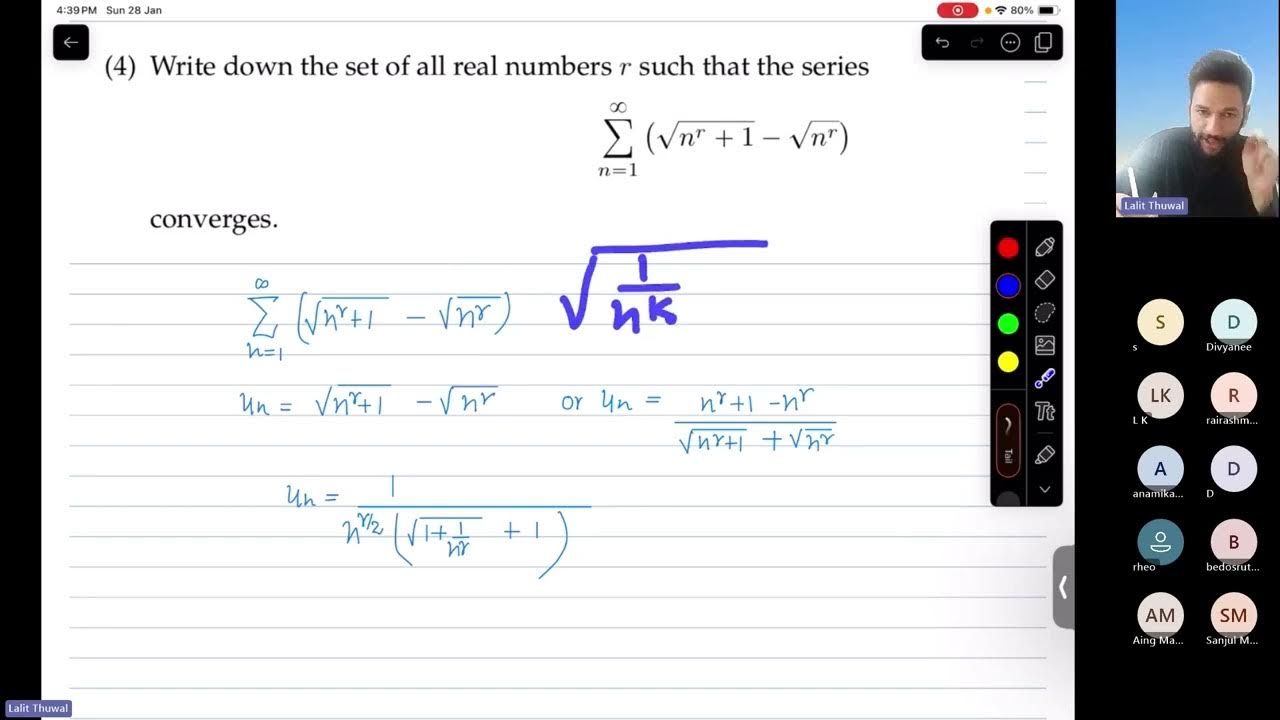 4:39 PM Sun 28 Jan
80%
(4) Write down the set of all real numbers r such that the series
∞
∑ (√(nʳ + 1) − √(nʳ))
n=1
converges.
∞
∑ (√(nʳ+1) − √(nʳ))
n=1
√(1/n^K)
uₙ = √(nʳ+1) − √(nʳ) or uₙ = (nʳ+1 −nʳ)/(√(nʳ+1) + √(nʳ))
uₙ = 1/(n^(r/2) (√(1+1/nʳ) + 1))
Tt
Tail
Lalit Thuwal
S
s
D
Divyanee
LK
L K
R
rairashm...
A
anamika...
D
D
rheo
B
bedosrut...
AM
Aing Ma...
SM
Sanjul M...
Lalit Thuwal